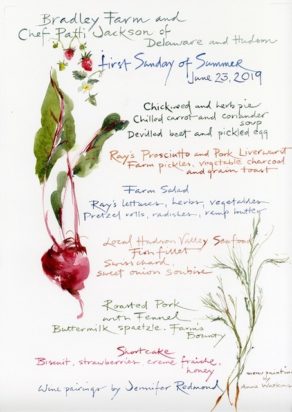 Bradley Farm and
Chef Patti Jackson of
Delaware and Hudson
First Sunday of Summer
June 23, 2019
Chickweed and herb pie
Chilled carrot and coriander
soup
Devilled beet and pickled egg
Ray's Prosciutto and Pork Liverwurst
Farm pickles, vegetable charcoal
and grain toast
Farm Salad
Ray's lettuces, herbs, vegetables
Pretzel rolls, radishes, ramp butter
Local Hudson Valley Seafood
Fish fillet
Swiss chard,
sweet onion soubise
Roasted Pork
with Fennel
Buttermilk spaetzle, Farm's
Bounty
Shortcake
Biscuit, strawberries, crème fraîche,
honey
Wine pairings by Jennifer Redmond
menu painting
by
Anna Watson